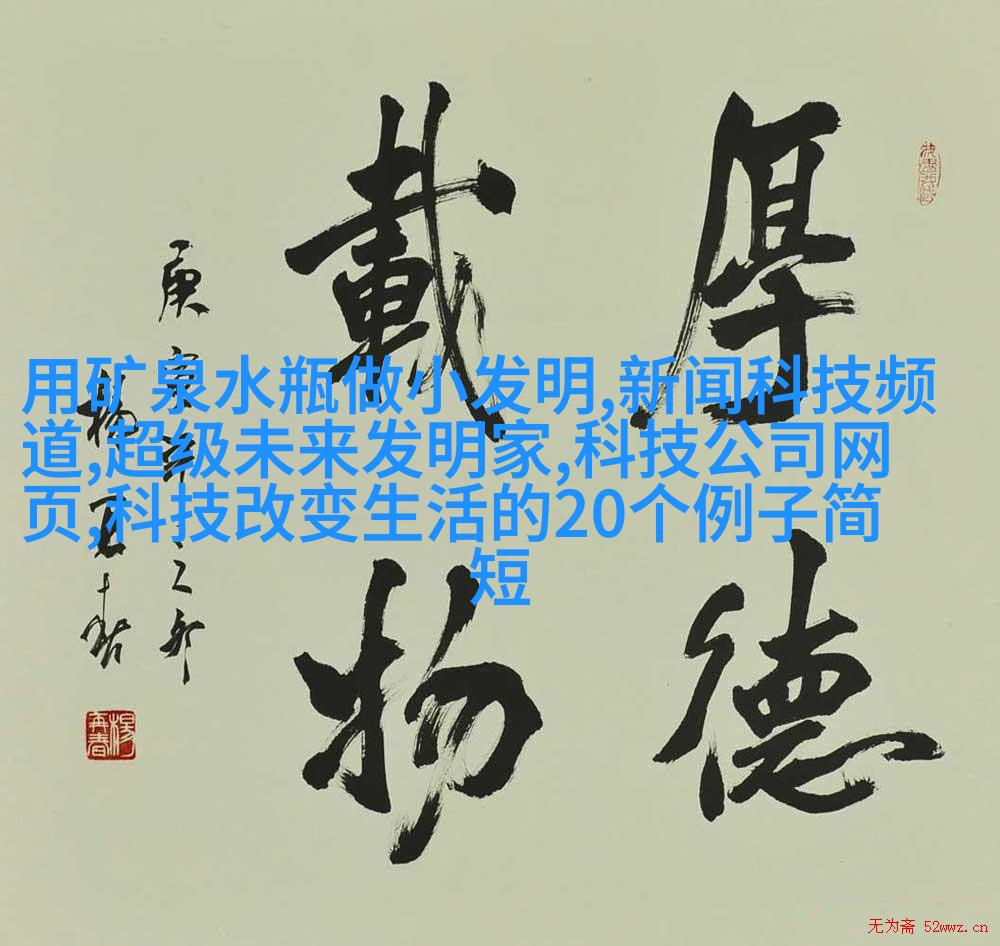 厚德
載物
庚寅年之邜
楊再春
楊再春
用矿泉水瓶做小发明,新闻科技频
道,超级未来发明家,科技公司网
页,科技改变生活的20个例子简
短
无为斋 52wwz.cn